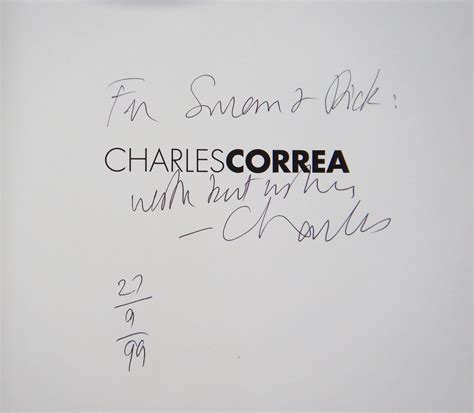 For Susan & Dick:
CHARLESCORREA
with best wishes
– Charles
27
9
99